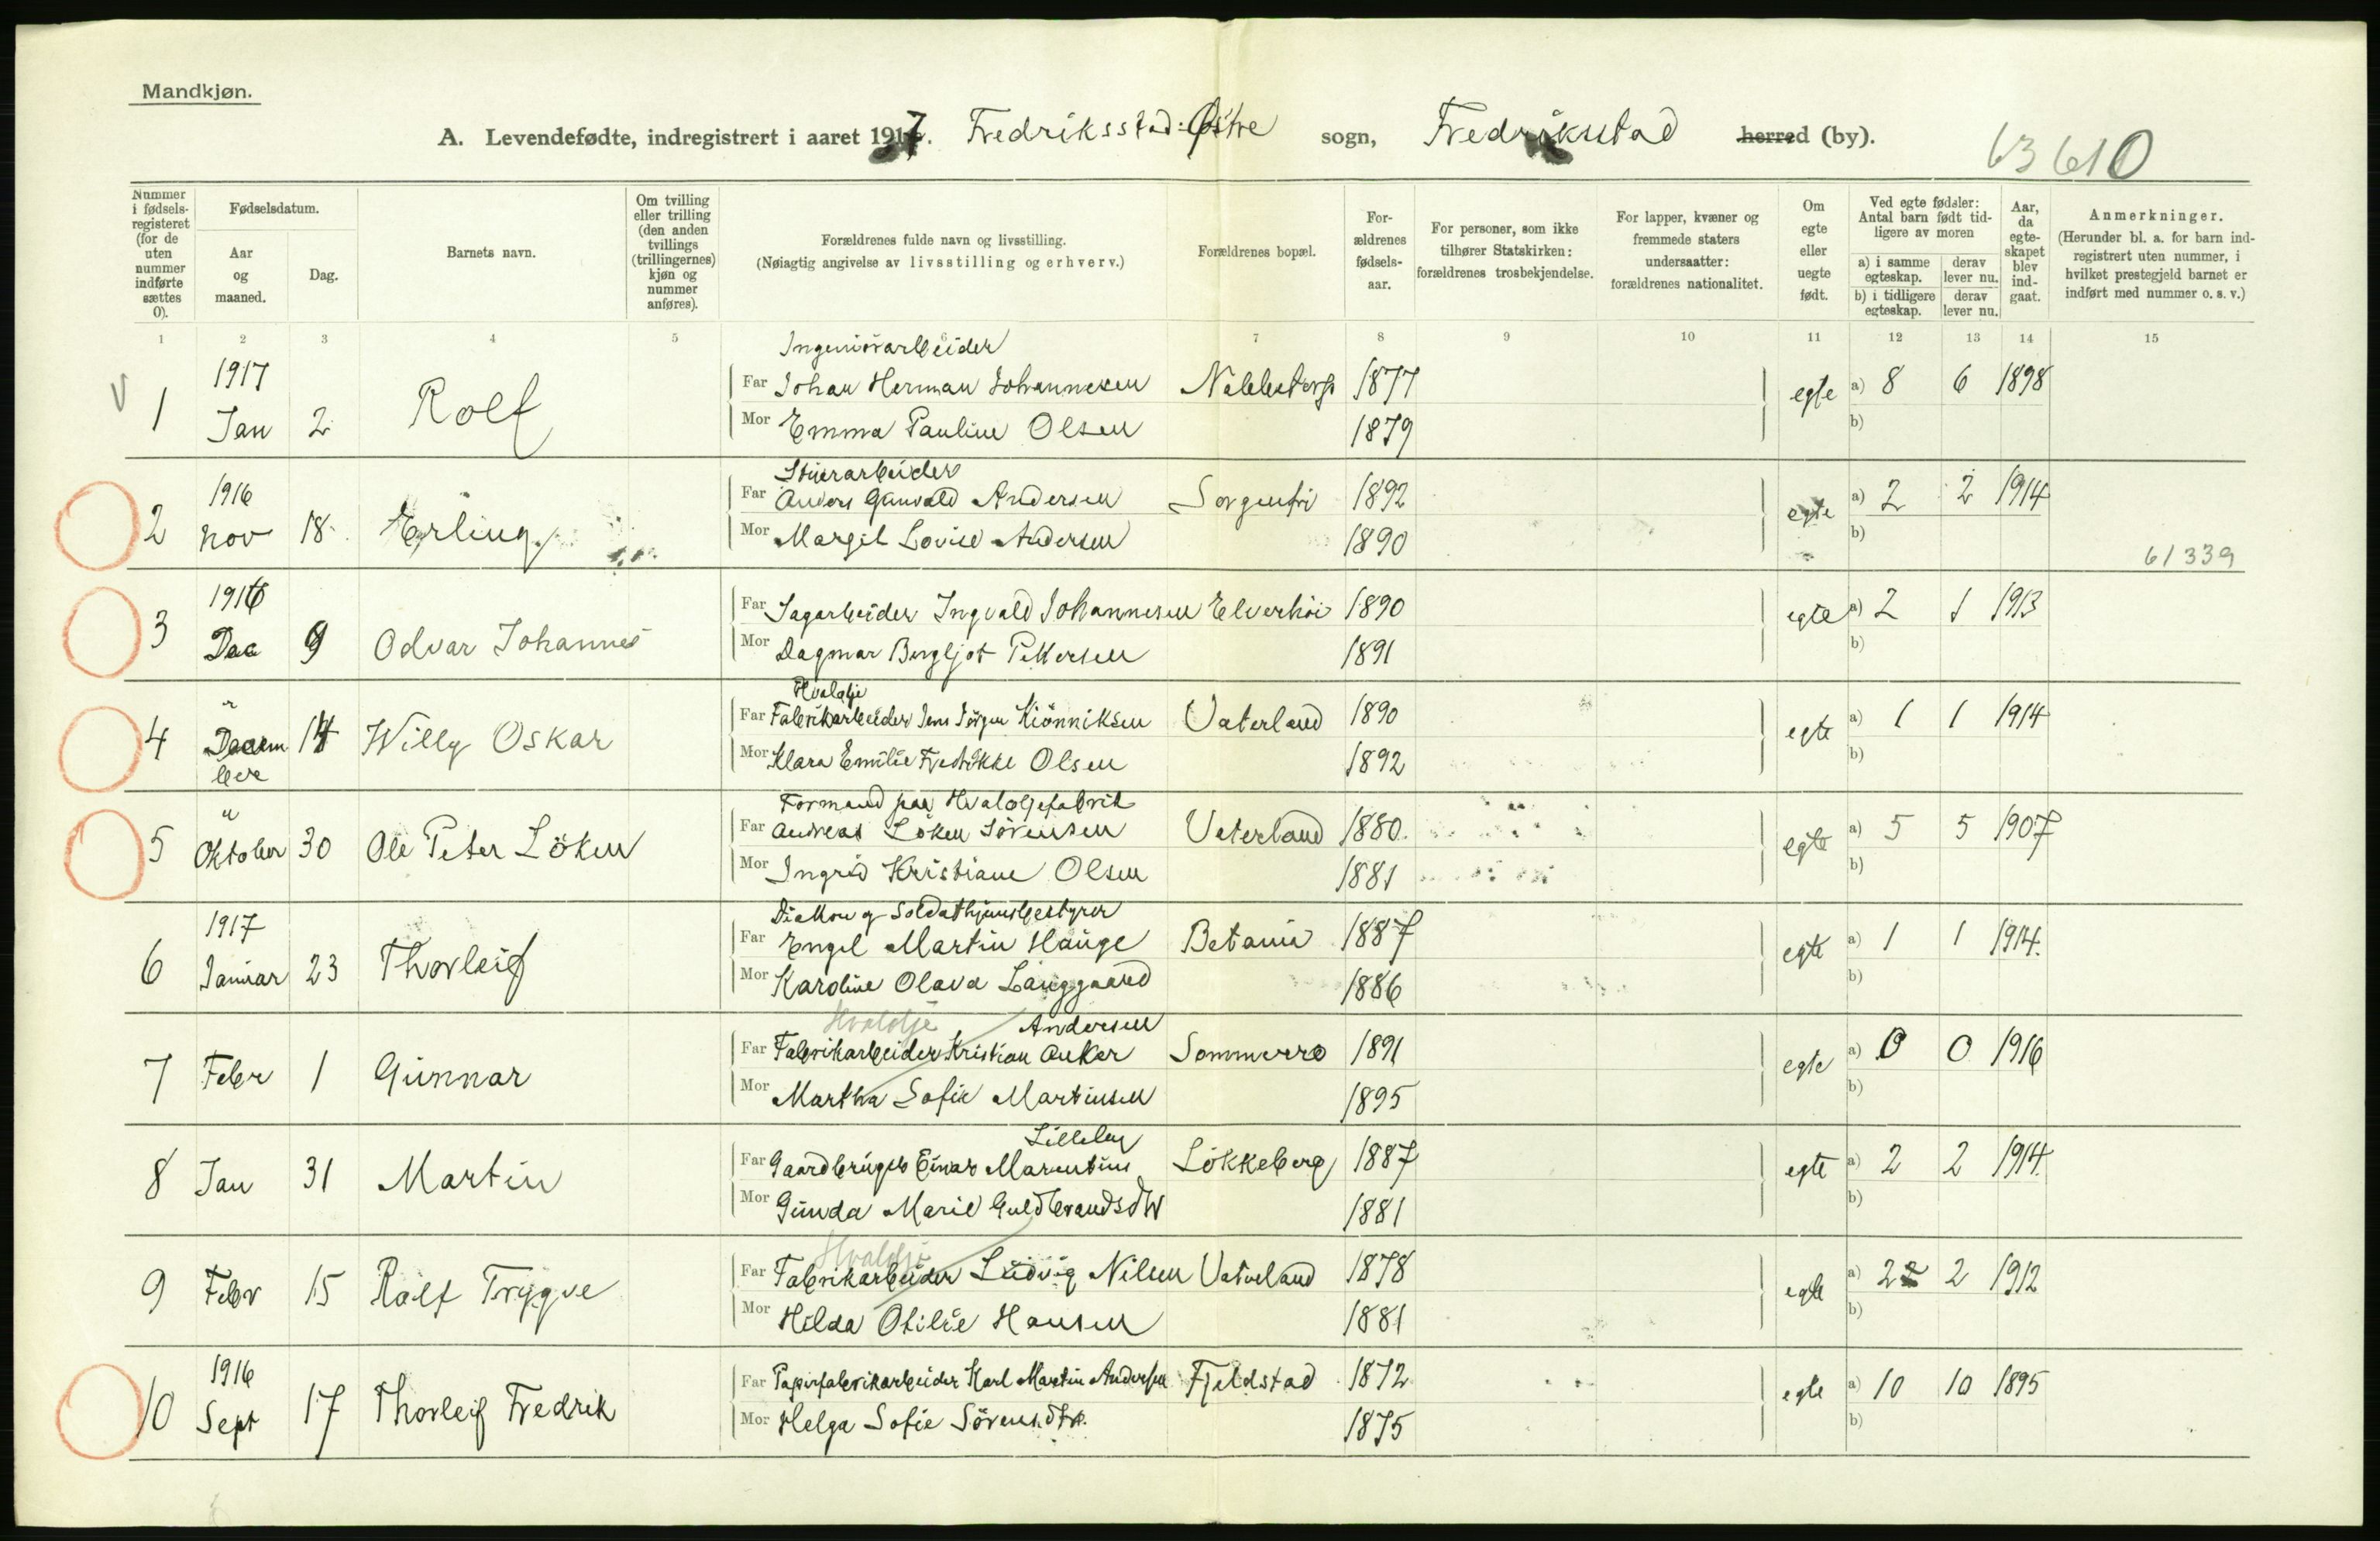 Mandkjøn.
A. Levendefødte, indregistrert i aaret 1917. Fredriksstad Østre sogn, Fredrikstad herred (by).
63610
Nummer i fødsels-registeret (for de uten nummer indførte sættes 0).
Fødselsdatum.
Aar og maaned.
Dag.
Barnets navn.
Om tvilling eller trilling (den anden tvillings (trillingernes) kjøn og nummer anføres).
Forældrenes fulde navn og livsstilling.
(Nøiagtig angivelse av livsstilling og erhverv.)
Forældrenes bopæl.
For-ældrenes fødsels-aar.
For personer, som ikke tilhører Statskirken: forældrenes trosbekjendelse.
For lapper, kvæner og fremmede staters undersaatter: forældrenes nationalitet.
Om egte eller uegte født.
Ved egte fødsler: Antal barn født tid-ligere av moren
a) i samme egteskap. derav lever nu.
b) i tidligere egteskap. derav lever nu.
Aar, da egte-skapet blev ind-gaat.
Anmerkninger.
(Herunder bl. a. for barn ind-registrert uten nummer, i hvilket prestegjeld barnet er indført med nummer o. s. v.)
1 2 3 4 5 6 7 8 9 10 11 12 13 14 15
Ingeniörarbeider
1917
V 1 Jan 2 Rolf Far Johan Herman Johannesen 1877 egte a) 8 6 1898
Mor Emma Pauline Olsen 1879 b)
Stuerarbeider
1916
2 Nov 18 Erling Far Anders Gunvald Andersen Sorgenfri 1892 egte a) 2 2 1914
Mor Margit Lovise Andersen 1890 b)
61339
1916
3 Dec 9 Odvar Johannes Far Sagarbeider Ingvald Johannesen Elverhöi 1890 egte a) 2 1 1913
Mor Dagmar Bergljot Pettersen 1891 b)
Hvalolje
"
4 December 14 Willy Oskar Far Fabrikarbeider Jens Jörgen Kiönniksen Vaterland 1890 egte a) 1 1 1914
Mor Klara Emilie Fredrikke Olsen 1892 b)
Formand paa Hvaloljefabrik
"
5 Oktober 30 Ole Peter Löken Far Andreas Löken Sörensen Vaterland 1880 egte a) 5 5 1907
Mor Ingrid Kristiane Olsen 1881 b)
Diakon og Soldathjemsbestyrer
1917
6 Januar 23 Thorleif Far Engel Martin Hauge Betania 1887 egte a) 1 1 1914.
Mor Karoline Olava Langgaard 1886 b)
Hvalolje Andersen
7 Febr 1 Gunnar Far Fabrikarbeider Kristian Anker Sommerro 1891 egte a) 0 0 1916
Mor Martha Sofie Martinsen 1895 b)
Lilleby
8 Jan 31 Martin Far Gaardbruger Einar Marentius Lökkeberg 1887 egte a) 2 2 1914.
Mor Gunda Marie Guldbrandsdtr 1881 b)
Hvalolje
9 Febr 15 Ralf Trygve Far Fabrikarbeider Ludvig Nilsen Vaterland 1878 egte a) 2 2 1912
Mor Hilda Otilie Hansen 1881 b)
1916
10 Sept 17 Thorleif Fredrik Far Papirfabrikarbeider Karl Martin Andersen Fjeldstad 1872 egte a) 10 10 1895
Mor Helga Sofie Sörensdtr. 1875 b)